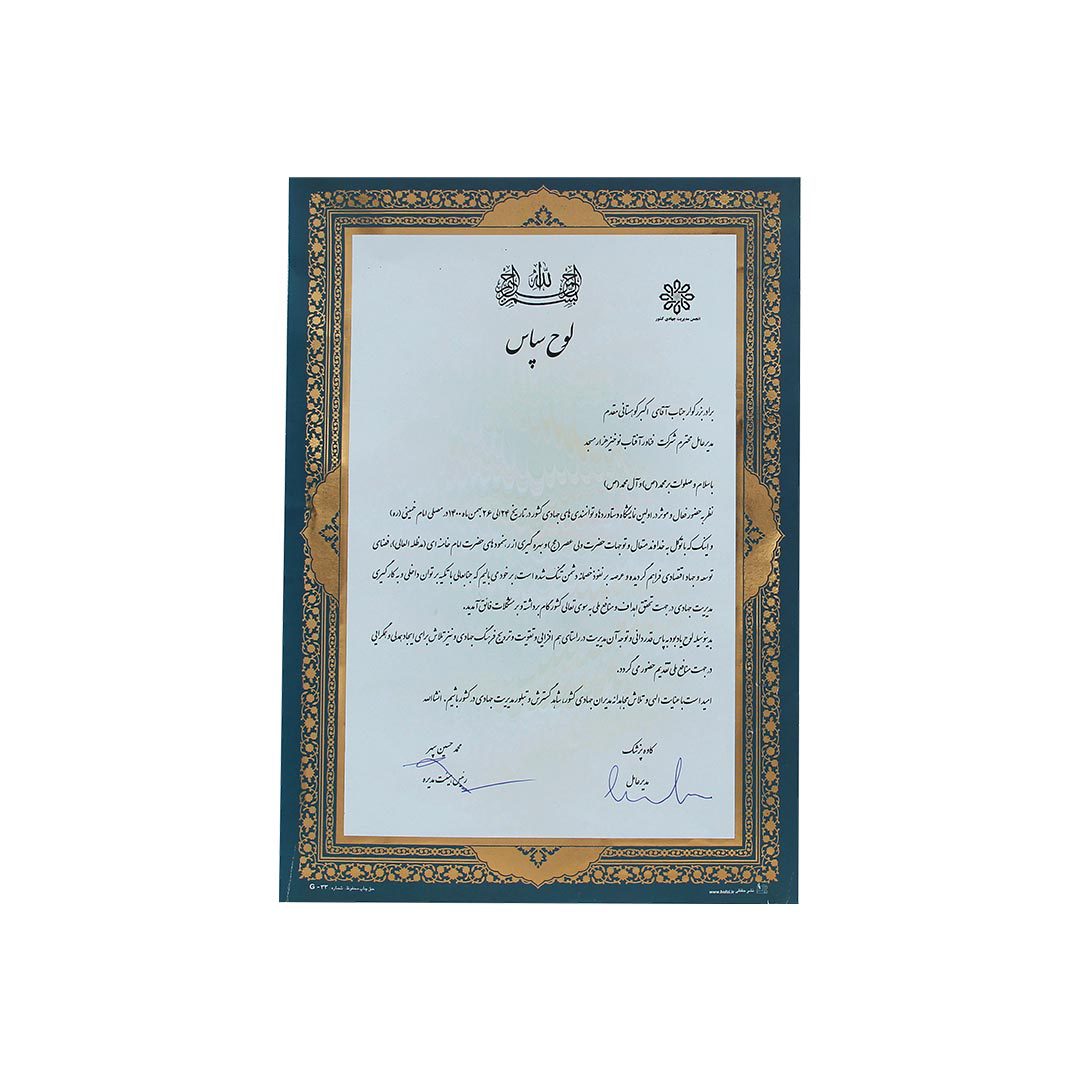 بسم الله الرحمن الرحیم
انجمن مدیریت جهادی کشور
لوح سپاس
برادر بزرگوار جناب آقای اکبر کوهستانی مقدم
مدیرعامل محترم شرکت فناور آفتاب نوخیز هزار مسجد
با سلام و صلوات بر محمد (ص) و آل محمد (ص)
نظر به حضور فعال و موثر در اولین نمایشگاه دستاوردها و توانمندی های جهادی کشور در تاریخ ۲۴ الی ۲۶ بهمن ماه ۱۴۰۰ در مصلی امام خمینی (ره)
و اینک که با توکل به خداوند متعال و توجهات حضرت ولی عصر (عج) و بهره گیری از رهنمودهای حضرت امام خامنه ای (مدظله العالی)، فضای
توسعه و جهاد اقتصادی فراهم گردیده و عرصه بر نفوذ خصمانه دشمن تنگ شده است، بر خود می بالیم که جنابعالی با تکیه بر توان داخلی و به کارگیری
مدیریت جهادی در جهت تحقق اهداف و منافع ملی به سوی تعالی کشور گام برداشته و بر مشکلات فائق آمدید.
بدینوسیله لوح یادبود به پاس قدردانی و توجه آن مدیریت در راستای هم افزایی و تقویت و ترویج فرهنگ جهادی و نیز تلاش برای ایجاد همدلی و همگرایی
در جهت منافع ملی تقدیم حضور می گردد.
امید است با عنایت الهی و تلاش مجاهدانه مدیران جهادی کشور، شاهد گسترش و تبلور مدیریت جهادی در کشور باشیم. انشاالله
کاوه پزشک
مدیرعامل
محمد حسین سپهر
رئیس هیئت مدیره
حق چاپ محفوظ. شماره: G - ۳۳